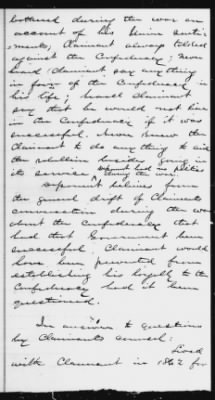 bothered during the war on
account of his Union senti-
ments, Claimant always talked
against the Confederacy; never
heard claimant say any thing
in favor of the Confederacy in
his life; heard Claimant
say that he would not live
in the Confederacy if it was
successful. Never knew the
Claimant to do any thing to aid
the rebellion besides going in
its service
deponent believes from
the general drift of Claimants
conversation during the war
about the Confederacy that
had that Government been
successful Claimant would
have been prevented from
establishing his loyalty to the
Confederacy had it been
questioned.
In answer to questions
by Claimants counsel:
Lived
with Claimant in 1862 for